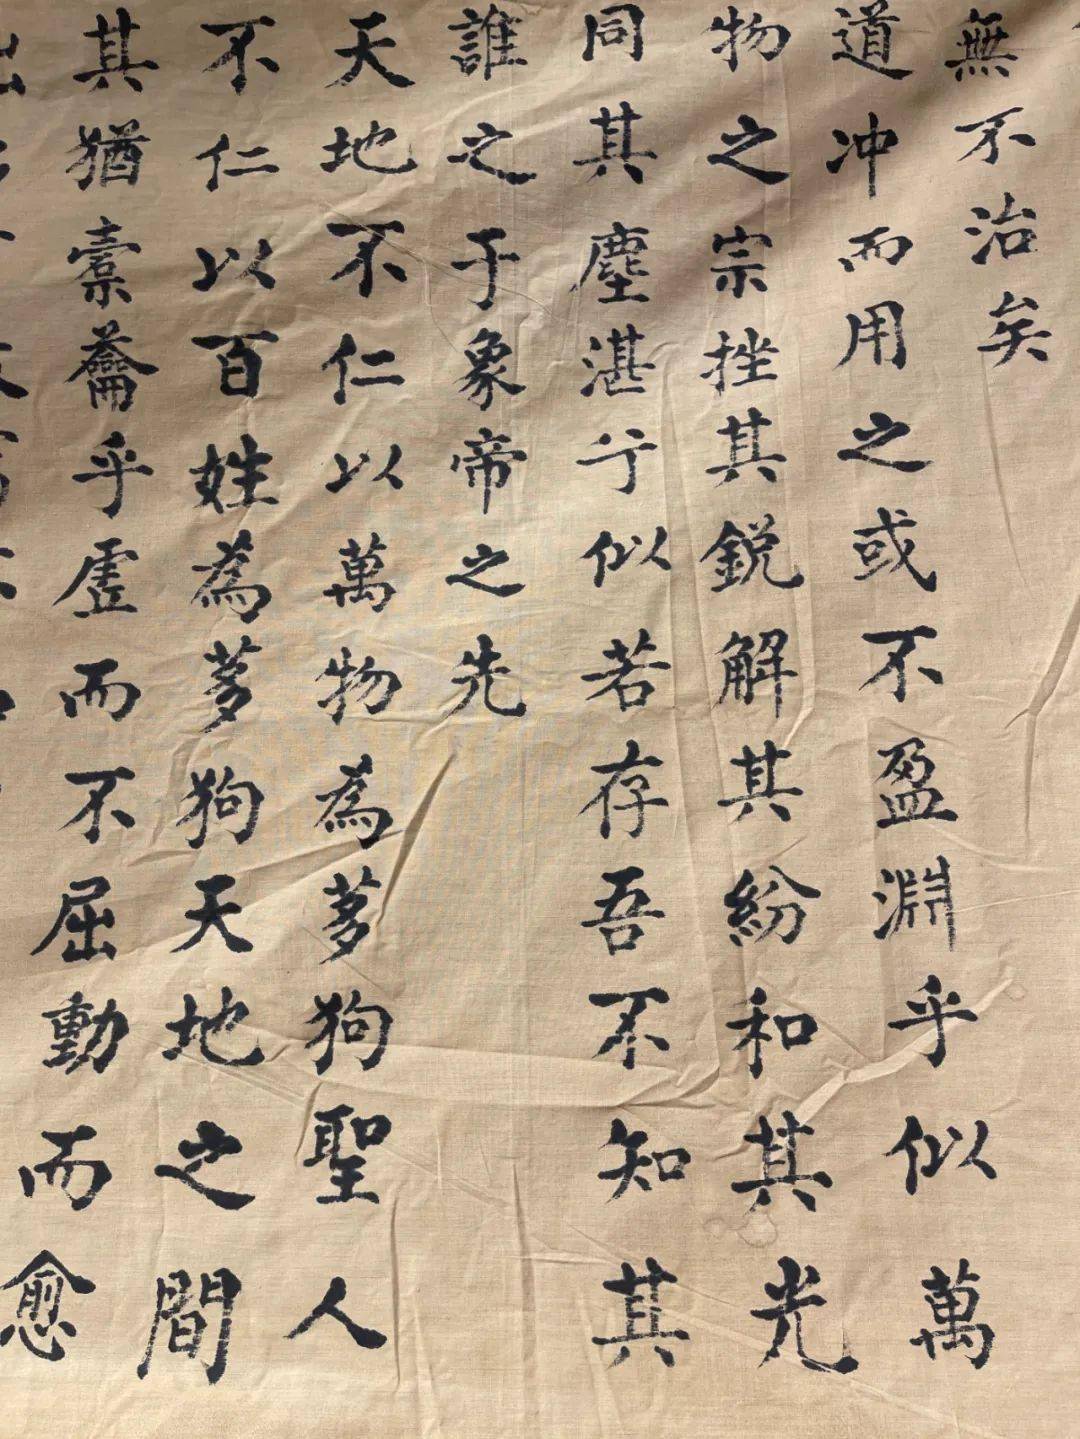 無不治矣
道冲而用之或不盈淵乎似萬
物之宗挫其鋭解其紛和其光
同其塵湛兮似若存吾不知其
誰之于象帝之先
天地不仁以萬物為芻狗聖人
不仁以百姓為芻狗天地之間
其猶橐蘥乎虛而不屈動而愈